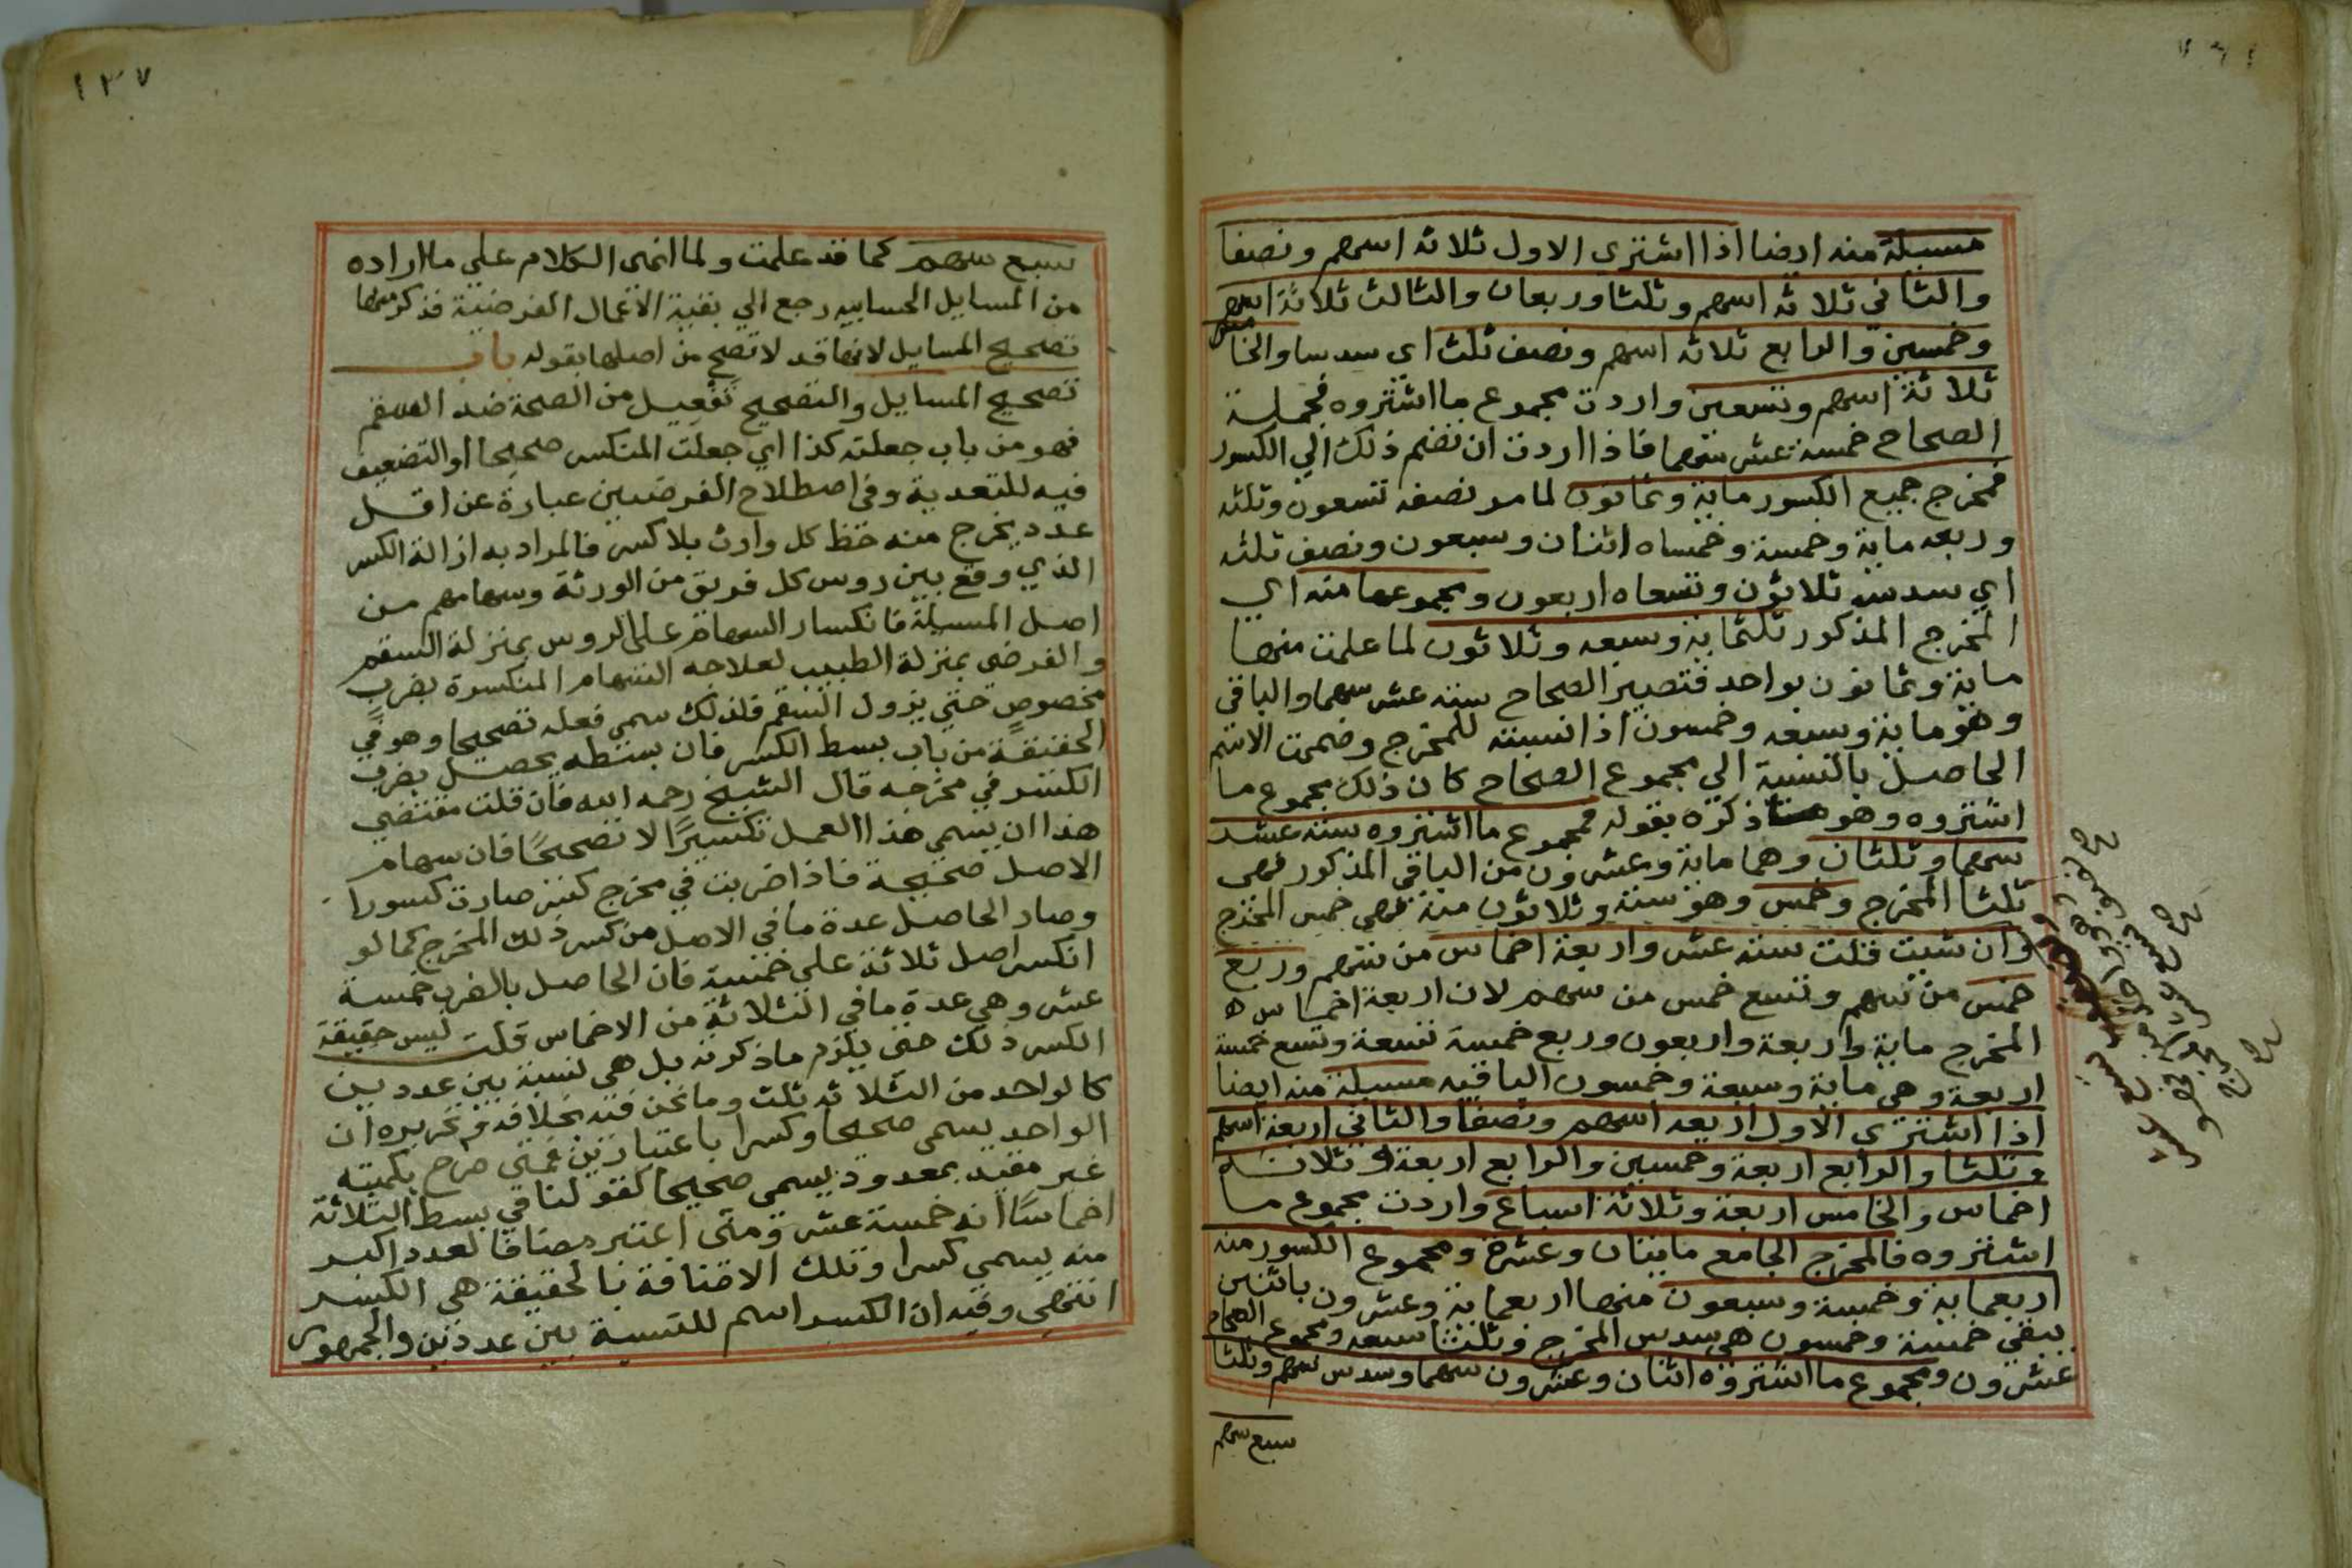 مسيلة منه ايضا اذا اشتري الاول ثلاثه اسهم ونصفا
والثاني ثلاثه اسهم وثلثا وربعا والثالث ثلاثة اسهم
وخمسين والرابع ثلاثه اسهم ونصف ثلث اي سدسا والخامس
ثلاثة اسهم وتسعين واردت مجموع ما اشتروه فجملة
الصحاح خمسة عشر سهما فاذا اردت ان تضم ذلك الي الكسور
فمخرج جميع الكسور ماية وثمانون لما مر نصفه تسعون وثلثه
وربعه ماية وخمسة وخمساه اثنان وسبعون ونصف ثلثه
اي سدسه ثلاثون وتسعاه اربعون ومجموعها منه اي
المخرج المذكور ثلثماية وسبعه وثلاثون لما علمت منها
ماية وثمانون بواحد فتصير الصحاح ستة عشر سهما والباقي
وهو ماية وسبعه وخمسون اذا نسبته للمخرج وضممت الاسم
الحاصل بالنسبة الي مجموع الصحاح كان ذلك مجموع ما
اشتروه وهو ما ذكره بقوله فمجموع ما اشتروه ستة عشر
سهما وثلثان وهما ماية وعشرون من الباقي المذكور فهي
ثلثا المخرج وخمس وهو ستة وثلاثون منه فهي خمس المخرج
وان شيت قلت ستة عشر واربعة اخماس من سهم وربع
خمس من سهم وتسع خمس من سهم لان اربعة اخماس
المخرج ماية واربعة واربعون وربع خمسة تسعة وتسع خمسة
اربعة وهي ماية وسبعة وخمسون الباقيه مسيلة منه ايضا
اذا اشتري الاول اربعه اسهم ونصفا والثاني اربعة اسهم
وثلثا والرابع اربعة وخمسين والرابع اربعة وثلاثة
اخماس والخامس اربعة وثلاثة اسباع واردت مجموع ما
اشتروه فالمخرج الجامع مايتان وعشرة ومجموع الكسور منه
اربعماية وخمسة وسبعون منها اربعماية وعشرون باثنين
يبقي خمسة وخمسون هي سدس المخرج وثلثا سبعه ومجموع الصحاح
عشرون ومجموع ما اشتروه اثنان وعشرون سهما وسدس سهم وثلثا
سبع سهم
١٣٧
سبع سهم كما قد علمت ولما انهى الكلام علي ما اراده
من المسايل الحسابيه رجع الي بقية الاعمال الفرضية فذكر منها
تصحيح المسايل لانها قد لا تصح من اصلها بقوله باب
تصحيح المسايل والتصحيح تفعيل من الصحة ضد السقم
فهو من باب جعلته كذا اي جعلت المنكسر صحيحا او التضعيف
فيه للتعدية وفي اصطلاح الفرضيين عبارة عن اقل
عدد يخرج منه حظ كل وارث بلا كسر فالمراد به ازالة الكسر
الذي وقع بين روس كل فريق من الورثة وسهامهم من
اصل المسيلة فانكسار السهام علي الروس بمنزلة السقم
والفرضي بمنزلة الطبيب لعلاجه السهام المنكسرة بضرب
مخصوص حتي يزول السقم فلذلك سمي فعله تصحيحا وهو في
الحقيقة من باب بسط الكسر فان بسطه يحصل بضرب
الكسر في مخرجه قال الشيخ رحمه الله فان قلت مقتضي
هذا ان يسمي هذا العمل تكسيرًا لا تصحيحًا فان سهام
الاصل صحيحة فاذا ضربت في مخرج كسر صارت كسورا
وصار الحاصل عدة ما في الاصل من كسر ذلك المخرج كما لو
انكسر اصل ثلاثة علي خمسة فان الحاصل بالضرب خمسة
عشر وهي عدة ما في الثلاثة من الاخماس قلت ليس حقيقة
الكسر ذلك حتي يلزم ما ذكرته بل هي نسبة بين عددين
كالواحد من الثلاثه ثلث وما نحن فيه بخلافه تحريره ان
الواحد يسمي صحيحا وكسرا باعتبارين فمتي صرح بكميته
غير مقيد بمعدود يسمي صحيحا كقولنا في بسط الثلاثة
اخماسًا انه خمسة عشر ومتي اعتبر مضافا لعدد اكبر
منه يسمي كسرا وتلك الاضافة بالحقيقة هي الكسر
انتهي وفيه ان الكسر اسم للنسبة بين عددين والجمهور